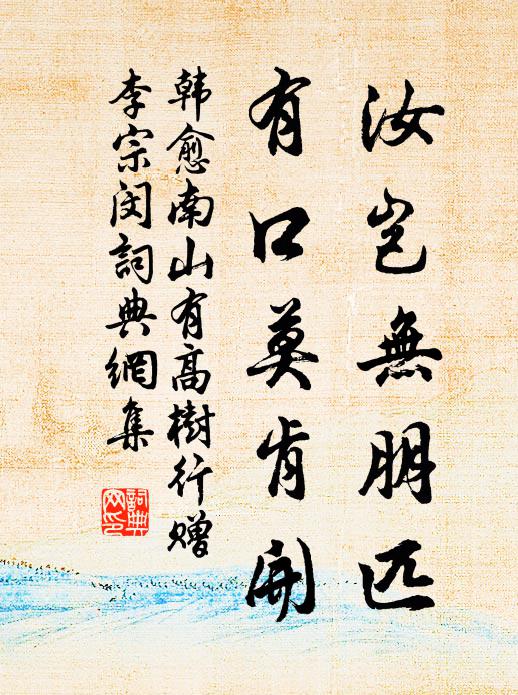 汝岂無朋匹
有口莫肯開
韩愈南山有高樹行赠
李宗闵詞典網集
詞典网印